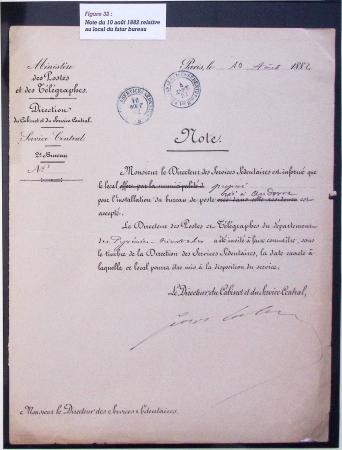 Figure 33 :
Note du 10 août 1882 relative
au local du futur bureau
Ministère
des Postes
et des Télégraphes.
Direction
du Cabinet et du Service Central.
Service Central.
2e Bureau
No
Paris, le 10 Août 1882
Note.
Monsieur le Directeur des Services Sédentaires est informé que
le local offert par la municipalité d proposé
pour l'installation du bureau de poste créé dans cette résidence est
créé à Andorre
accepté.
Le Directeur des Postes et Télégraphes du département
des Pyrénées Orientales a été invité à faire connaître, sous
le timbre de la Direction des Services Sédentaires, la date exacte à
laquelle ce local pourra être mis à la disposition du service.
Le Directeur du Cabinet et du Service Central,
à Monsieur le Directeur des Services Sédentaires.